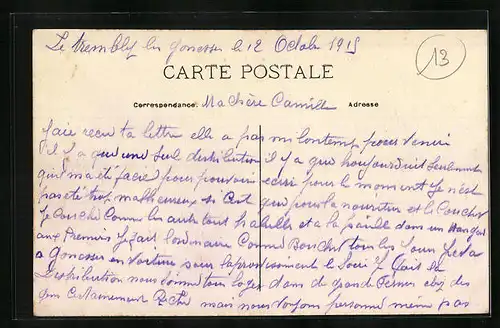 Le tremblay les gonesses le 12 Octobre 1915
13
CARTE POSTALE
Correspondance Ma Chère Camille Adresse
jaie recu ta lettre elle a pas mi lontemp pour venir
il y a que une seul destribution il y a que aujourduit seulement
qui ma été facil pour pouvoir ecrir pour le moment Je n'est
pas eté trop malheureux si C'est que pour la nourriture et le Coucher
Je Couche Comme les autre tout habille et a la paille dans un hangar
aux Premier Je fait lordinaire Comme Boucher tous les Jour Je va
a Gonesses en voiture pour la provisionnement le Soir Je fait la
Destribution nous somme tous loger dans de grande Fermes chez des
mais nous voyons personne même pas